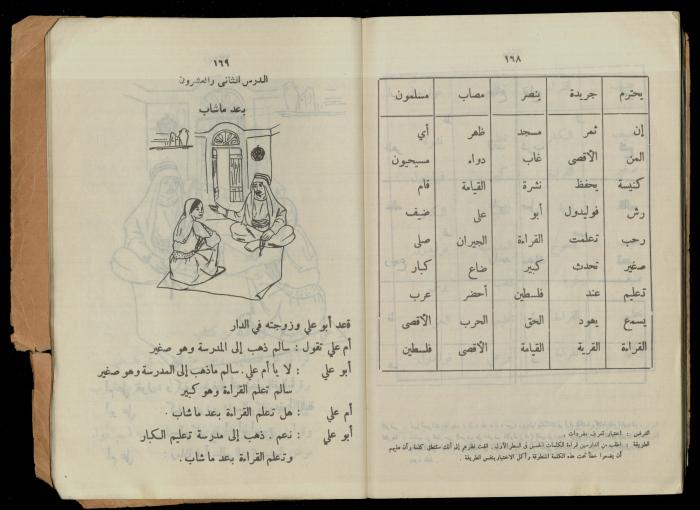 ١٦٨
يحترم جريدة ينصر مصاب مسلمون
إن ثمر مسجد ظهر أي
المن الأقصى غاب دواء مسيحيون
كنيسة يحفظ نشرة القيامة قام
رش فوليدول أبو على ضيف
رحب تعلمت القراءة الجيران صلى
صغير تحدث كبير ضاع كبار
تعليم عند فلسطين أحضر عرب
يسمع يهود الحق الحرب الأقصى
القراءة القرية القيامة الأقصى فلسطين
الغرض : اختبار تعرف مفردات .
الطريقة : اطلب من الدارسين قراءة الكلمات الخمس في السطر الأول . الفت نظرهم إلى أنك ستنطق كلمة وأن عليهم
أن يضعوا خطاً تحت هذه الكلمة المنطوقة وأكمل الاختبار بنفس الطريقة .
١٦٩
الدرس الثاني والعشرون
بعد ماشاب
قعد أبو علي وزوجته في الدار
أم علي تقول : سالم ذهب إلى المدرسة وهو صغير
أبو علي : لا يا أم علي . سالم ماذهب إلى المدرسة وهو صغير
سالم تعلم القراءة وهو كبير
أم علي : هل تعلم القراءة بعد ماشاب .
أبو علي : نعم . ذهب إلى مدرسة تعليم الكبار
وتعلم القراءة بعد ماشاب .